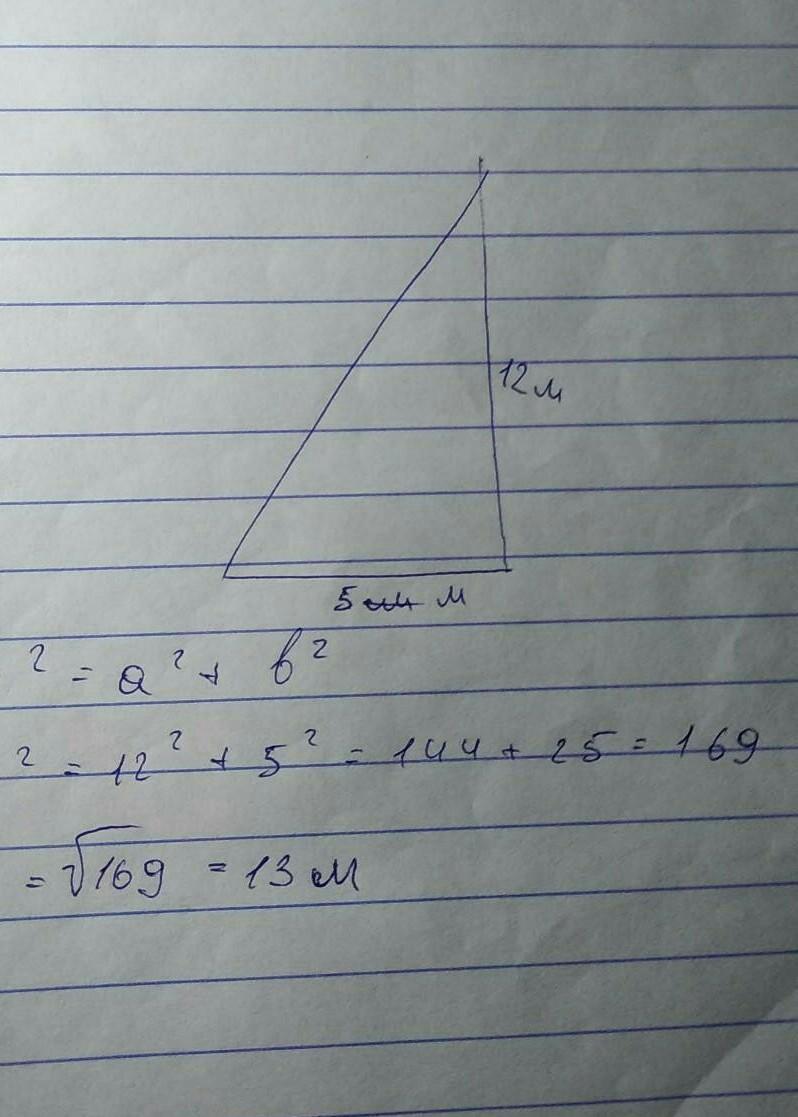 12 м
5 м
² = a² + b²
² = 12² + 5² = 144 + 25 = 169
= √169 = 13 м